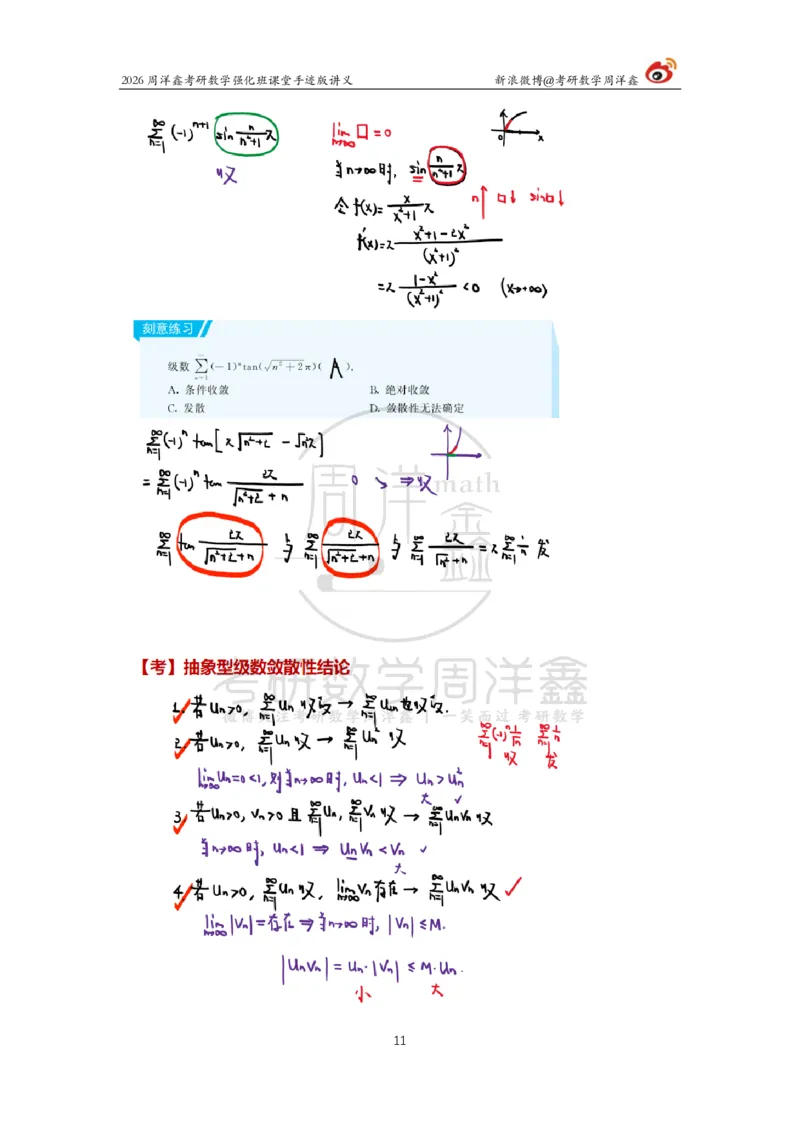 2026 周洋鑫考研数学强化班课堂手迹版讲义 新浪微博@考研数学周洋鑫
∞Σn=1 (-1)^{n+1} sin n/(n²+1) π
收
lim n→∞ □ = 0
0 x
当n→∞时, sin n/(n²+1) π
n↑ □↓ sin□↓
令 f(x) = x/(x²+1) π
f'(x) = π (x²+1-2x²)/(x²+1)²
= π (1-x²)/(x²+1)² < 0 (x→+∞)
刻意练习
级数 ∞Σn=1 (-1)^n tan(√(n²+2) π)( A ).
A. 条件收敛 B. 绝对收敛
C. 发散 D. 敛散性无法确定
∞Σn=1 (-1)^n tan[π√(n²+2) - √n² π]
= ∞Σn=1 (-1)^n tan 2π/(√(n²+2) + n) 0 ↘ ⇒收
∞Σn=1 tan 2π/(√(n²+2)+n) 与 ∞Σn=1 2π/(√(n²+2)+n) 与 ∞Σn=1 2π/(√n²+n) = π ∞Σn=1 1/n 发
周洋 math
鑫
【考】抽象型级数敛散性结论
考研数学周洋鑫
微博关注考研数学周洋鑫 | 一笑而过 考研数学
1. 若 Un>0, ∞Σn=1 Un 收敛 → ∞Σn=1 U2n 也收敛.
2. 若 Un>0, ∞Σn=1 Un 收 → ∞Σn=1 Un² 收
∞Σn=1 (-1)^n 1/n 收 ∞Σn=1 1/n 发
lim n→∞ Un=0<1, 则当n→∞时, Un<1 ⇒ Un > Un²
大 ✓
3. 若 Un>0, Vn>0 且 ∞Σn=1 Un, ∞Σn=1 Vn 收 → ∞Σn=1 UnVn 收
当n→∞时, Un<1 ⇒ UnVn < Vn ✓
大
4. 若 Un>0, ∞Σn=1 Un 收, lim n→∞ Vn 存在 → ∞Σn=1 UnVn 收 ✓
lim n→∞ |Vn| = 存在 ⇒ 当n→∞时, |Vn| ≤ M.
|UnVn| = Un·|Vn| ≤ M·Un.
小 大
11